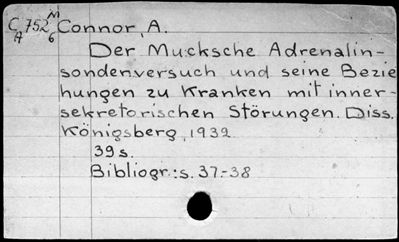 C 752 M Connor, A.
A 6
Der Mucksche Adrenalin-
sondenversuch und seine Bezie
hungen zu Kranken mit inner-
sekretorischen Störungen. Diss.
Königsberg, 1932
39 s.
Bibliogr.: s. 37-38